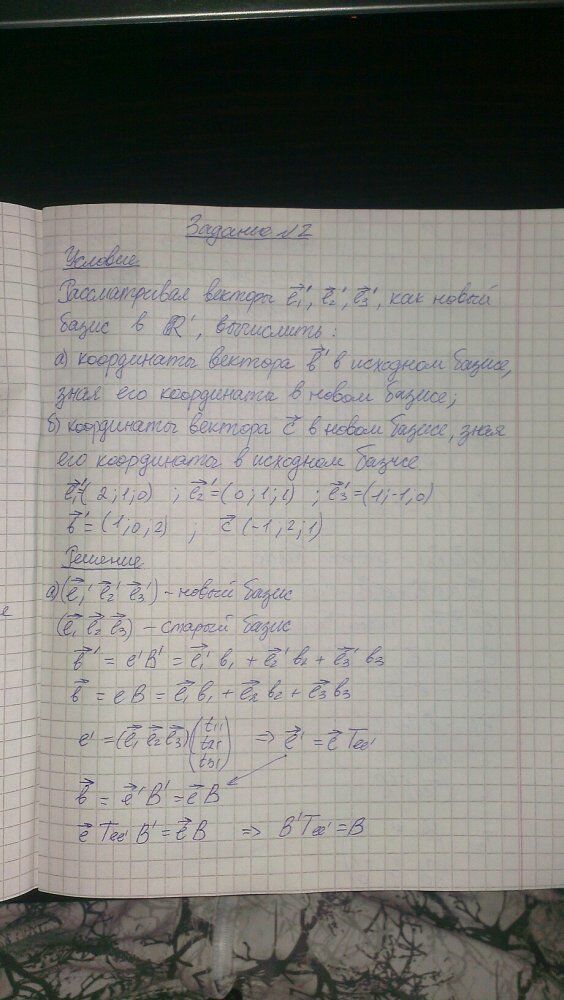 Задание №2
Условие
Рассматривая векторы e⃗₁', e⃗₂', e⃗₃', как новый
базис в R', вычислить:
а) координаты вектора b⃗' в исходном базисе,
зная его координаты в новом базисе;
б) координаты вектора c⃗ в новом базисе, зная
его координаты в исходном базисе
e⃗₁'=(2;1;0) ; e⃗₂'=(0;1;1) ; e⃗₃'=(1;-1,0)
b⃗'=(1;0;2) ; c⃗ (-1;2;1)
Решение
а) (e⃗₁' e⃗₂' e⃗₃') – новый базис
(e⃗₁ e⃗₂ e⃗₃) – старый базис
b⃗' = e'B' = e⃗₁' b₁ + e⃗₂' b₂ + e⃗₃' b₃
b⃗ = eB = e⃗₁ b₁ + e⃗₂ b₂ + e⃗₃ b₃
e' = (e⃗₁ e⃗₂ e⃗₃) (t₁₁ t₂₁ t₃₁) => e⃗' = e⃗ Tee'
b⃗ = e⃗' B' = e⃗ B
e⃗ Tee' B' = e⃗ B => B'Tee' = B